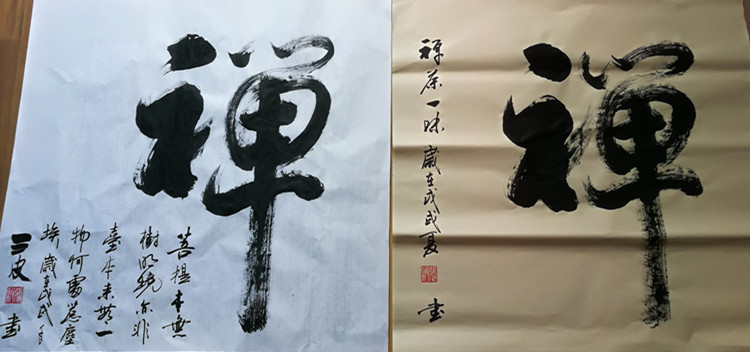 禪
菩提本無
樹明鏡亦非
臺本来無一
物何需惹塵
埃 歲在戊戌
三皮 書
禪
禅茶一味 歲在戊戌夏
書